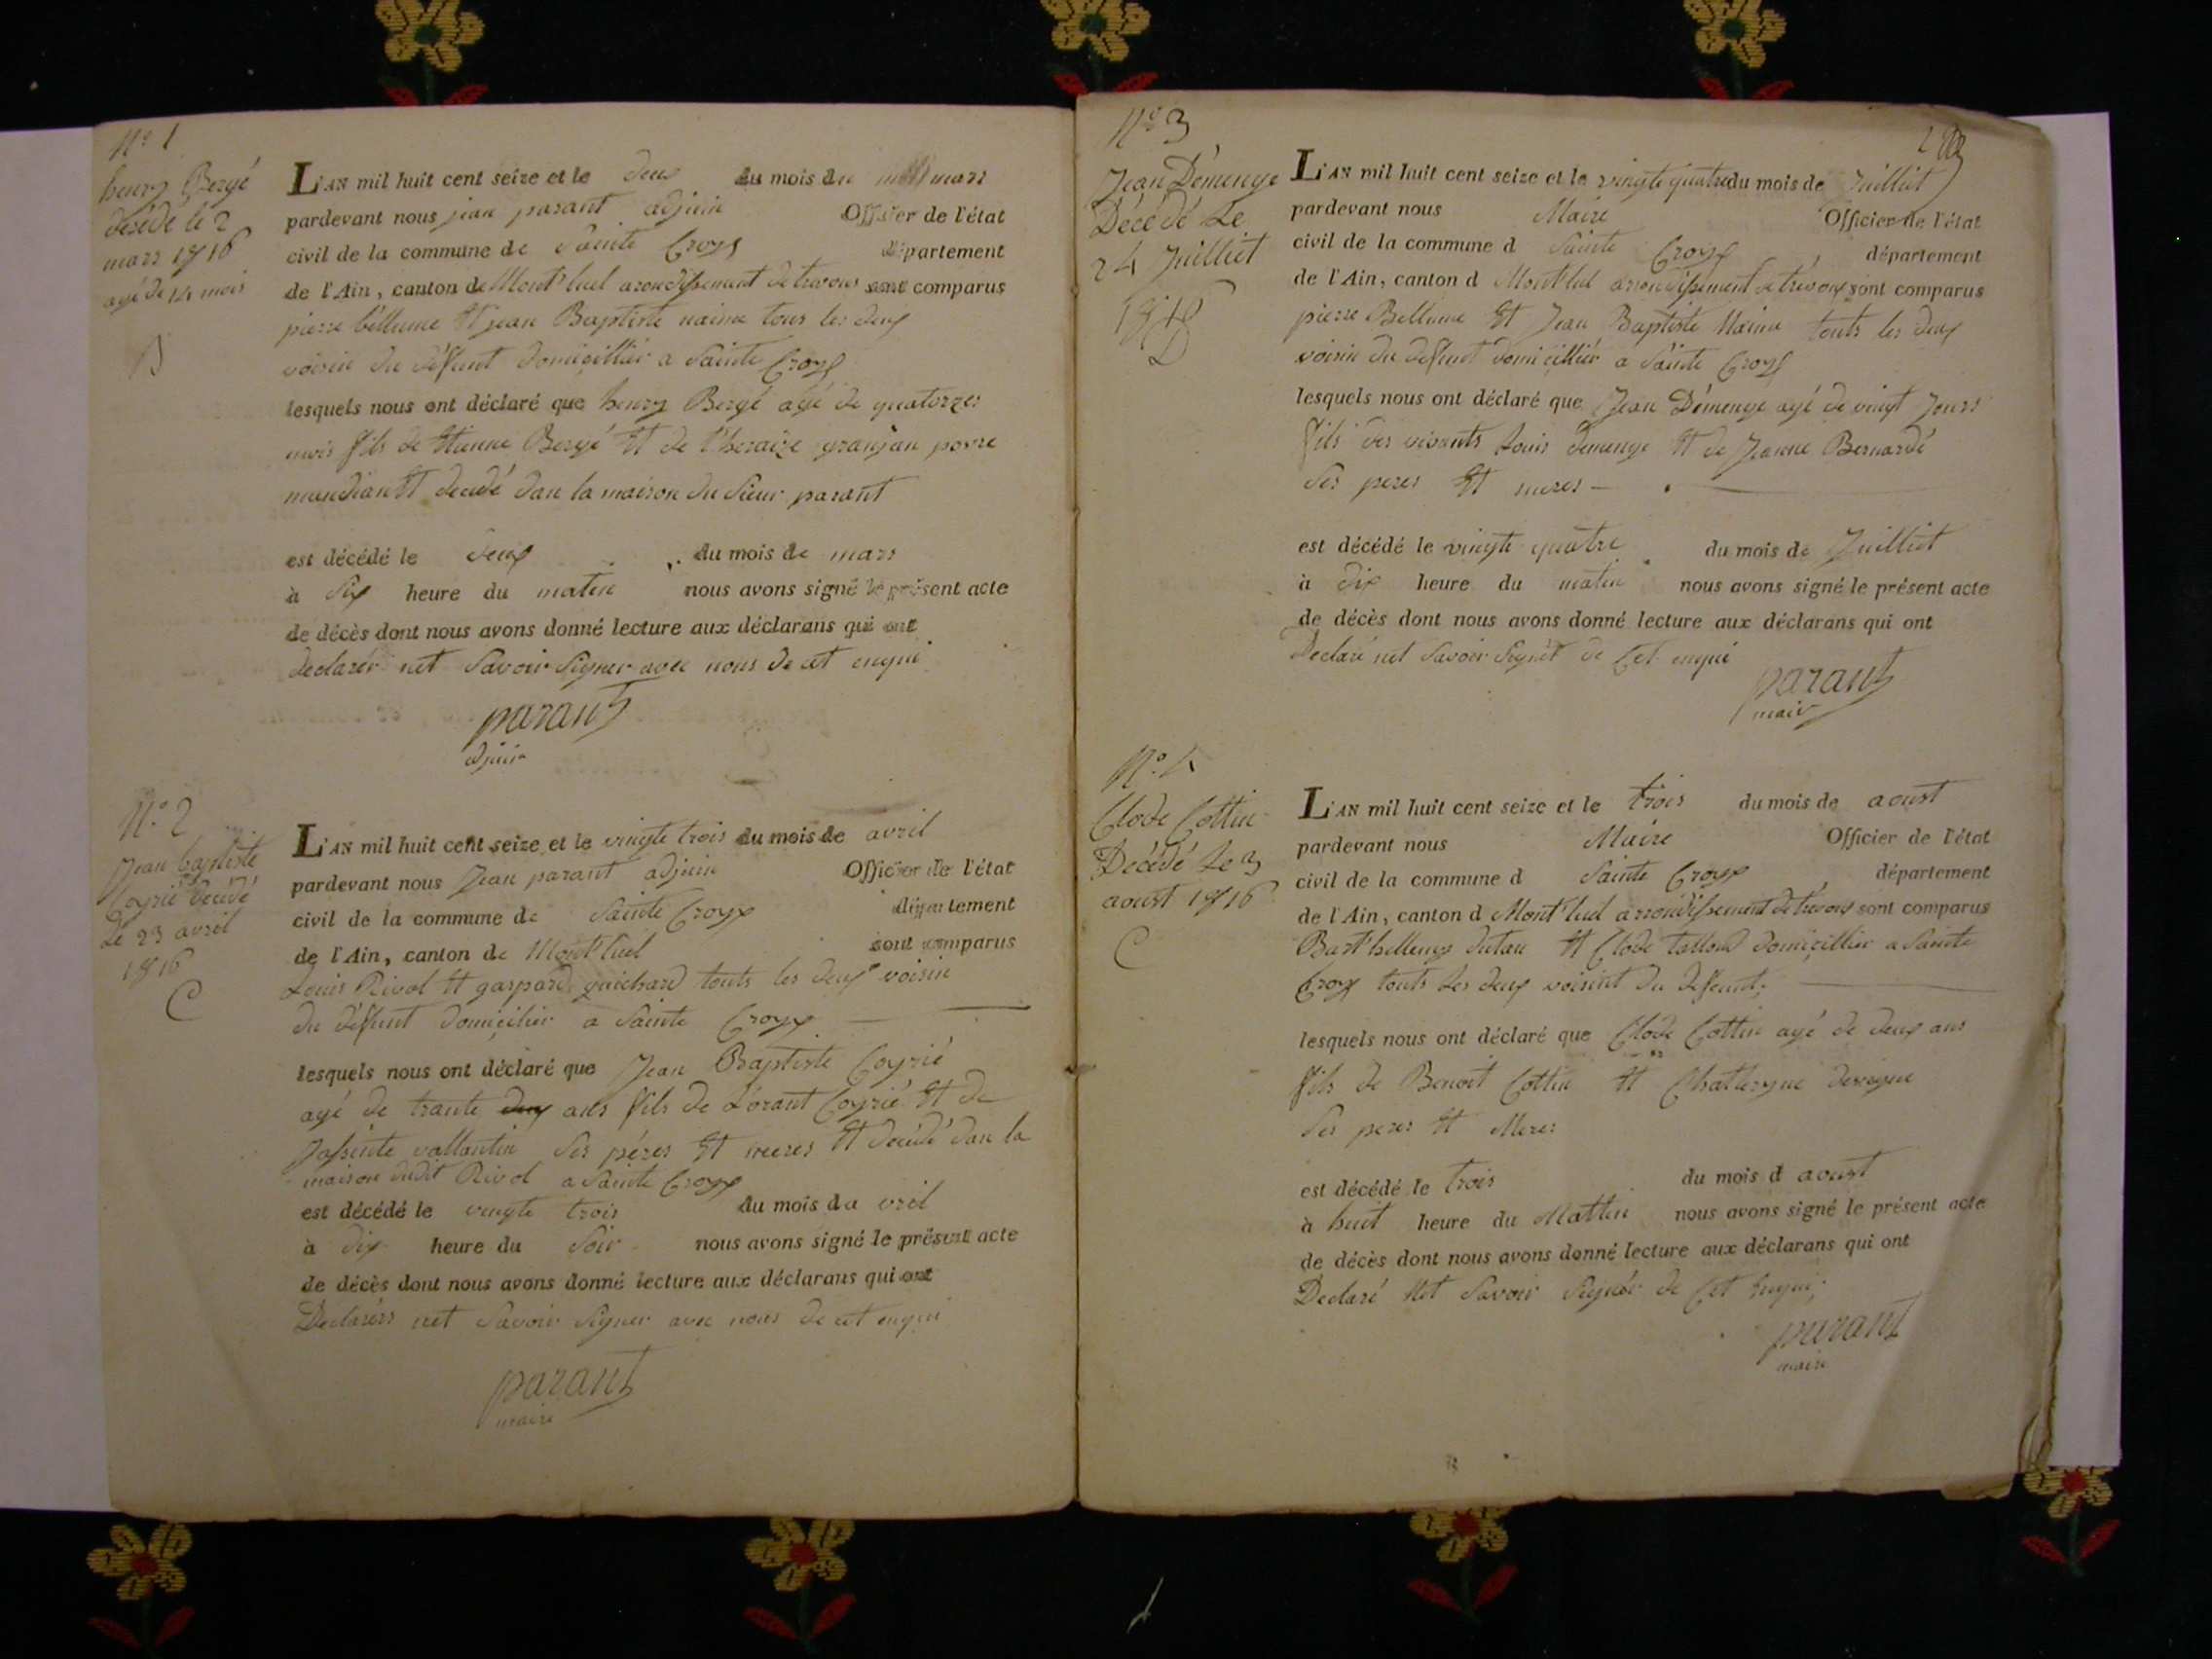 N.o 1
henry Bergé
décédé le 2
mars 1816
agé de 14 mois
B
L'AN mil huit cent seize et le deux du mois de mars
pardevant nous jean parant adjoin Officier de l'état
civil de la commune de Sainte Croyx département
de l'Ain, canton de Mont'luel arondissement de trevoux sont comparus
pierre bellume Et jean Baptiste naime tous les deux
voisin du défunt domicillier a Sainte Croyx
lesquels nous ont déclaré que henry Bergé agé de quatorzes
mois fils de Etienne Bergé Et de theraize granjan povre
mandiant Et decedé dan la maison du Sieur parant
est décédé le deux du mois de mars
à six heure du matin nous avons signé le présent acte
de décès dont nous avons donné lecture aux déclarans qui ont
declarér net Savoir Signer avec nous de cet enqui
parant
adjoin
N.o 2
Jean baptiste
Coyrié décédé
Le 23 avril
1816
C
L'AN mil huit cent seize et le vingte trois du mois de avril
pardevant nous Jean parant adjoin Officier de l'état
civil de la commune de Sainte Croyx département
de l'Ain, canton de Mont'luel sont comparus
Louis Rivol Et gaspard guichard touts les deux voisin
du défunt domicilier a Sainte Croyx
lesquels nous ont déclaré que Jean Baptiste Coyrié
agé de trante deux ans fils de Lorant Coyrié Et de
Jassinte vallantin Ses péres Et meres Et decédé dan la
maison dudit Rivol a Sainte Croyx
est décédé le vingte trois du mois da vril
à dix heure du Soir nous avons signé le présent acte
de décès dont nous avons donné lecture aux déclarans qui ont
Declarérs net Savoir Signer avec nous de cet enqui
parant
maire
N.o 3
Jean Démenge
Décédé Le
24 Juilliet
1816
D
L'AN mil huit cent seize et le vingte quatre du mois de Juilliet
pardevant nous Maire Officier de l'état
civil de la commune d Sainte Croyx département
de l'Ain, canton d Mont'luel arrondissement de trévoux sont comparus
pierre Bellume Et Jean Baptiste Naime touts les deux
voisin du défunt domicillier a Sainte Croyx
lesquels nous ont déclaré que Jean Démenge agé de vingt Jours
fils des vivants Louis demenge Et de Jeanne Bernardé
Ses peres Et meres
est décédé le vingte quatre du mois de Juilliet
à dix heure du matin nous avons signé le présent acte
de décès dont nous avons donné lecture aux déclarans qui ont
Declaré net Savoir Signér de Cet enqui
parant
maire
N.o 4
Clode Cottin
Décédé Le 3
aoust 1816
C
L'AN mil huit cent seize et le trois du mois de aoust
pardevant nous Maire Officier de l'état
civil de la commune d Sainte Croyx département
de l'Ain, canton d Mont'luel arrondissement de trevoux sont comparus
Bart'hellemy Et Clode domicillier a Sainte
Croyx touts Les deux voisint du defeunt
lesquels nous ont déclaré que Clode Cottin agé de deux ans
fils de Benoit Cottin Et Chatteryne
Ses peres Et Meres
est décédé le trois du mois d aoust
à huit heure du Mattin nous avons signé le présent acte
de décès dont nous avons donné lecture aux déclarans qui ont
Declaré Net Savoir Signér de Cet Enqui
parant
maire